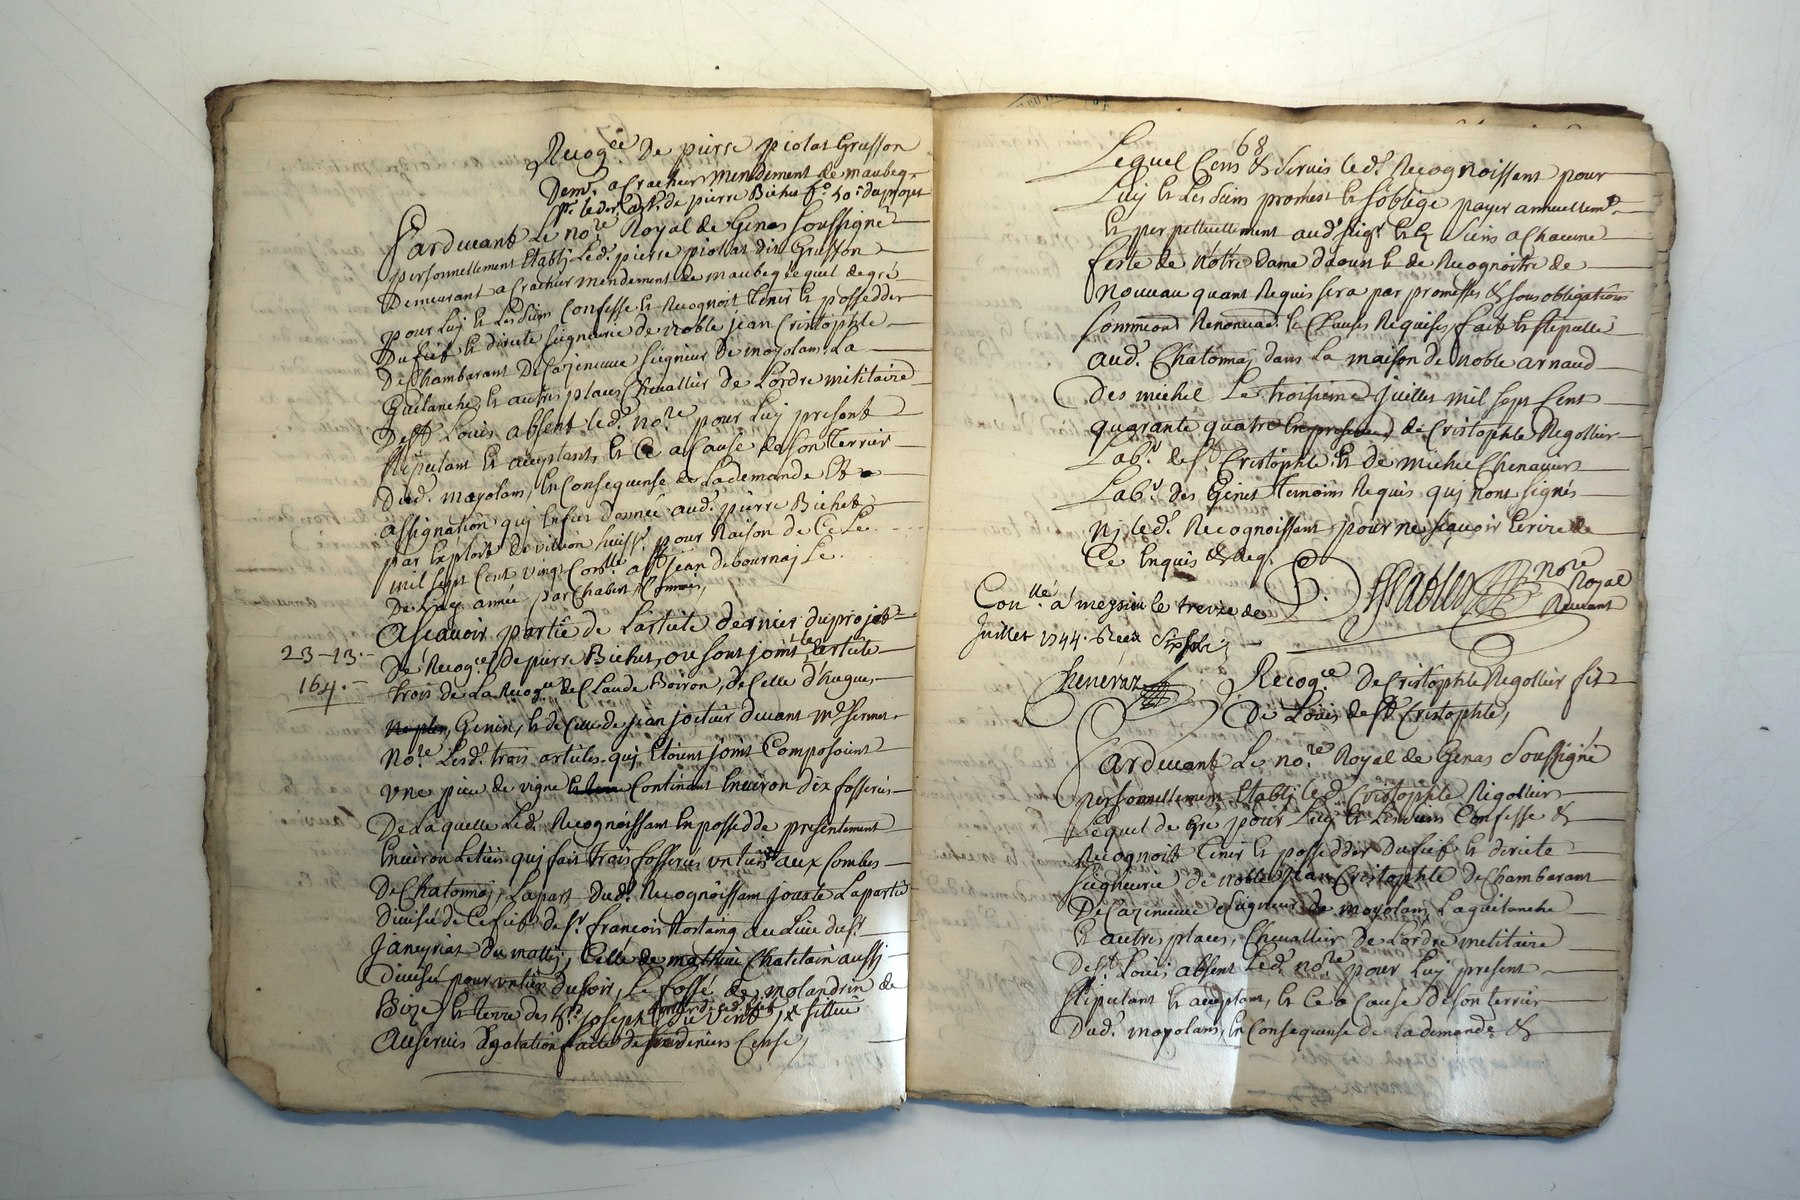 Recog.ce De pierre piolat Grasson
Dem.t a Crachier Mendement de maubeg
de pierre Bichet f.o 50 du projet
Pardevant Le no.re Royal de Genas Soussigné
personnellement Etablj Led. pierre piolat dit Grasson
Demeurant a Crachier mendement de maubeg Lequel de gré
pour Luy & Les Siens Confesse & Recognoit Tenir & possedder
Du fief & directe Seigneurie de noble jean Cristophle
De Chambarant De Cazeneuve Seigneur De moyolans La
Guilanche & autres places Chevallier De L'ordre militaire
De S.t Louis absent led. no.re pour Luy present
Stipulant & aceptant, & Ce a Cause de Son Terrier
Dud. moyolans, En Consequense de La demande Et
assignation quj En fut donnée aud. pierre Bichet
par Exploit de huiss.r pour Raison de Ce Le
mil Sept Cent vingt Con.llé a S.t jean de bournaj Le
De Lad. année par Chabert Commis,
Ascavoir partie de L'article dernier du projet
23-13.
De Recog.ce De pierre Bichet, ou Sont joints Les article
164.
trois de La Recog.ce De Claude Boiron, De Celle d'hugues
Genin, & de Celle de jean joctur devant m.e
No.re Lesd. trois articles quj Etoient joint Composoient
Une piece de vigne Continant Environ dix fosserés
De Laquelle Led. Recognoissant En possedde presentement
Environ Le tiers quj fait trois fosserés Scituée aux Combes
De Chatonnaj, La part Dud. Recognoissant jouste La partie
Divisée de Ce fief de S.r francois Rostaing au Lieu de S.r
Janeyriat Du matin, Celle de mathieu Chatelain aussj
Divisée pour du Soir, Le fossé de molandrin de
Bize & terre des h.rs joseph du vent
Au Servis Egalation faite de deniers Cense,
68
Lequel Cens & Servis led. Recognoissant pour
Luy & Les Siens promet & S'oblige payer annuellem.t
& perpetuellement aud. Seig.r & Es Siens a Chacune
feste de Notre Dame D'aoust & de Recognoitre de
Nouveau quant Requis Sera par promesses & Sous obligations
Soumiond Renonciad. & Clauses Requises fait & Repetté
aud. Chatonnaj dans La maison de Noble arnaud
Des michel Le troisieme Juillet mil Sept Cent
quarante quatre En presence de Cristophle Rigollier
Lab.r de S.t Cristophle & de michel Chenavier
Lab.r des Epinet Temoins Requis quj n'ont Signés
nj led. Recognoissant pour ne Scavoir Ecrire de
Ce Enquis & Req.
no.re Royal
Recevant
Con.llé a meyrieu le treize de
Juillet 1744. Receu Six Sols
Cheneraz
Recog.ce De Cristophle Rigollier fils
De Louis de S.t Cristophle,
Pardevant Le no.re Royal de Genas Soussigné
personnellement Etablj led. Cristophle Rigollier
Lequel de gré pour Luy & Les Siens Confesse &
Recognoit Tenir & possedder Du fief & directe
Seigneurie de noble jean Cristophle De Chambarant
De Cazeneuve Seigneur de moyolans, La guilanche
& autres places, Chevallier De L'ordre militaire
De S.t Louis absent Led. no.re pour Luy present
Stipulant & aceptant, & Ce a Cause de Son Terrier
Dud. moyolans, En Consequense de La demande &